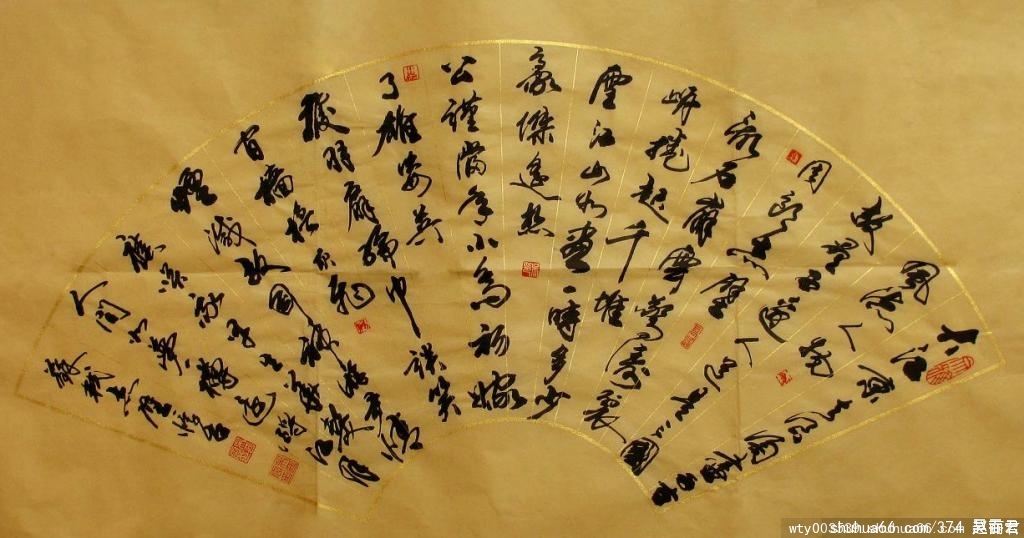 大江東去浪淘盡千古
風流人物
故壘西邊人道是三國
周郎赤壁
亂石崩雲驚濤裂
岸捲起千堆
雪江山如畫一時多少
豪傑遙想
公謹當年小喬初嫁
了雄姿英
發羽扇綸巾談笑
間檣櫓灰飛
煙滅故國神遊多情
應笑我早生華髮
人間如夢一樽還酹江月
蘇軾赤壁懷古